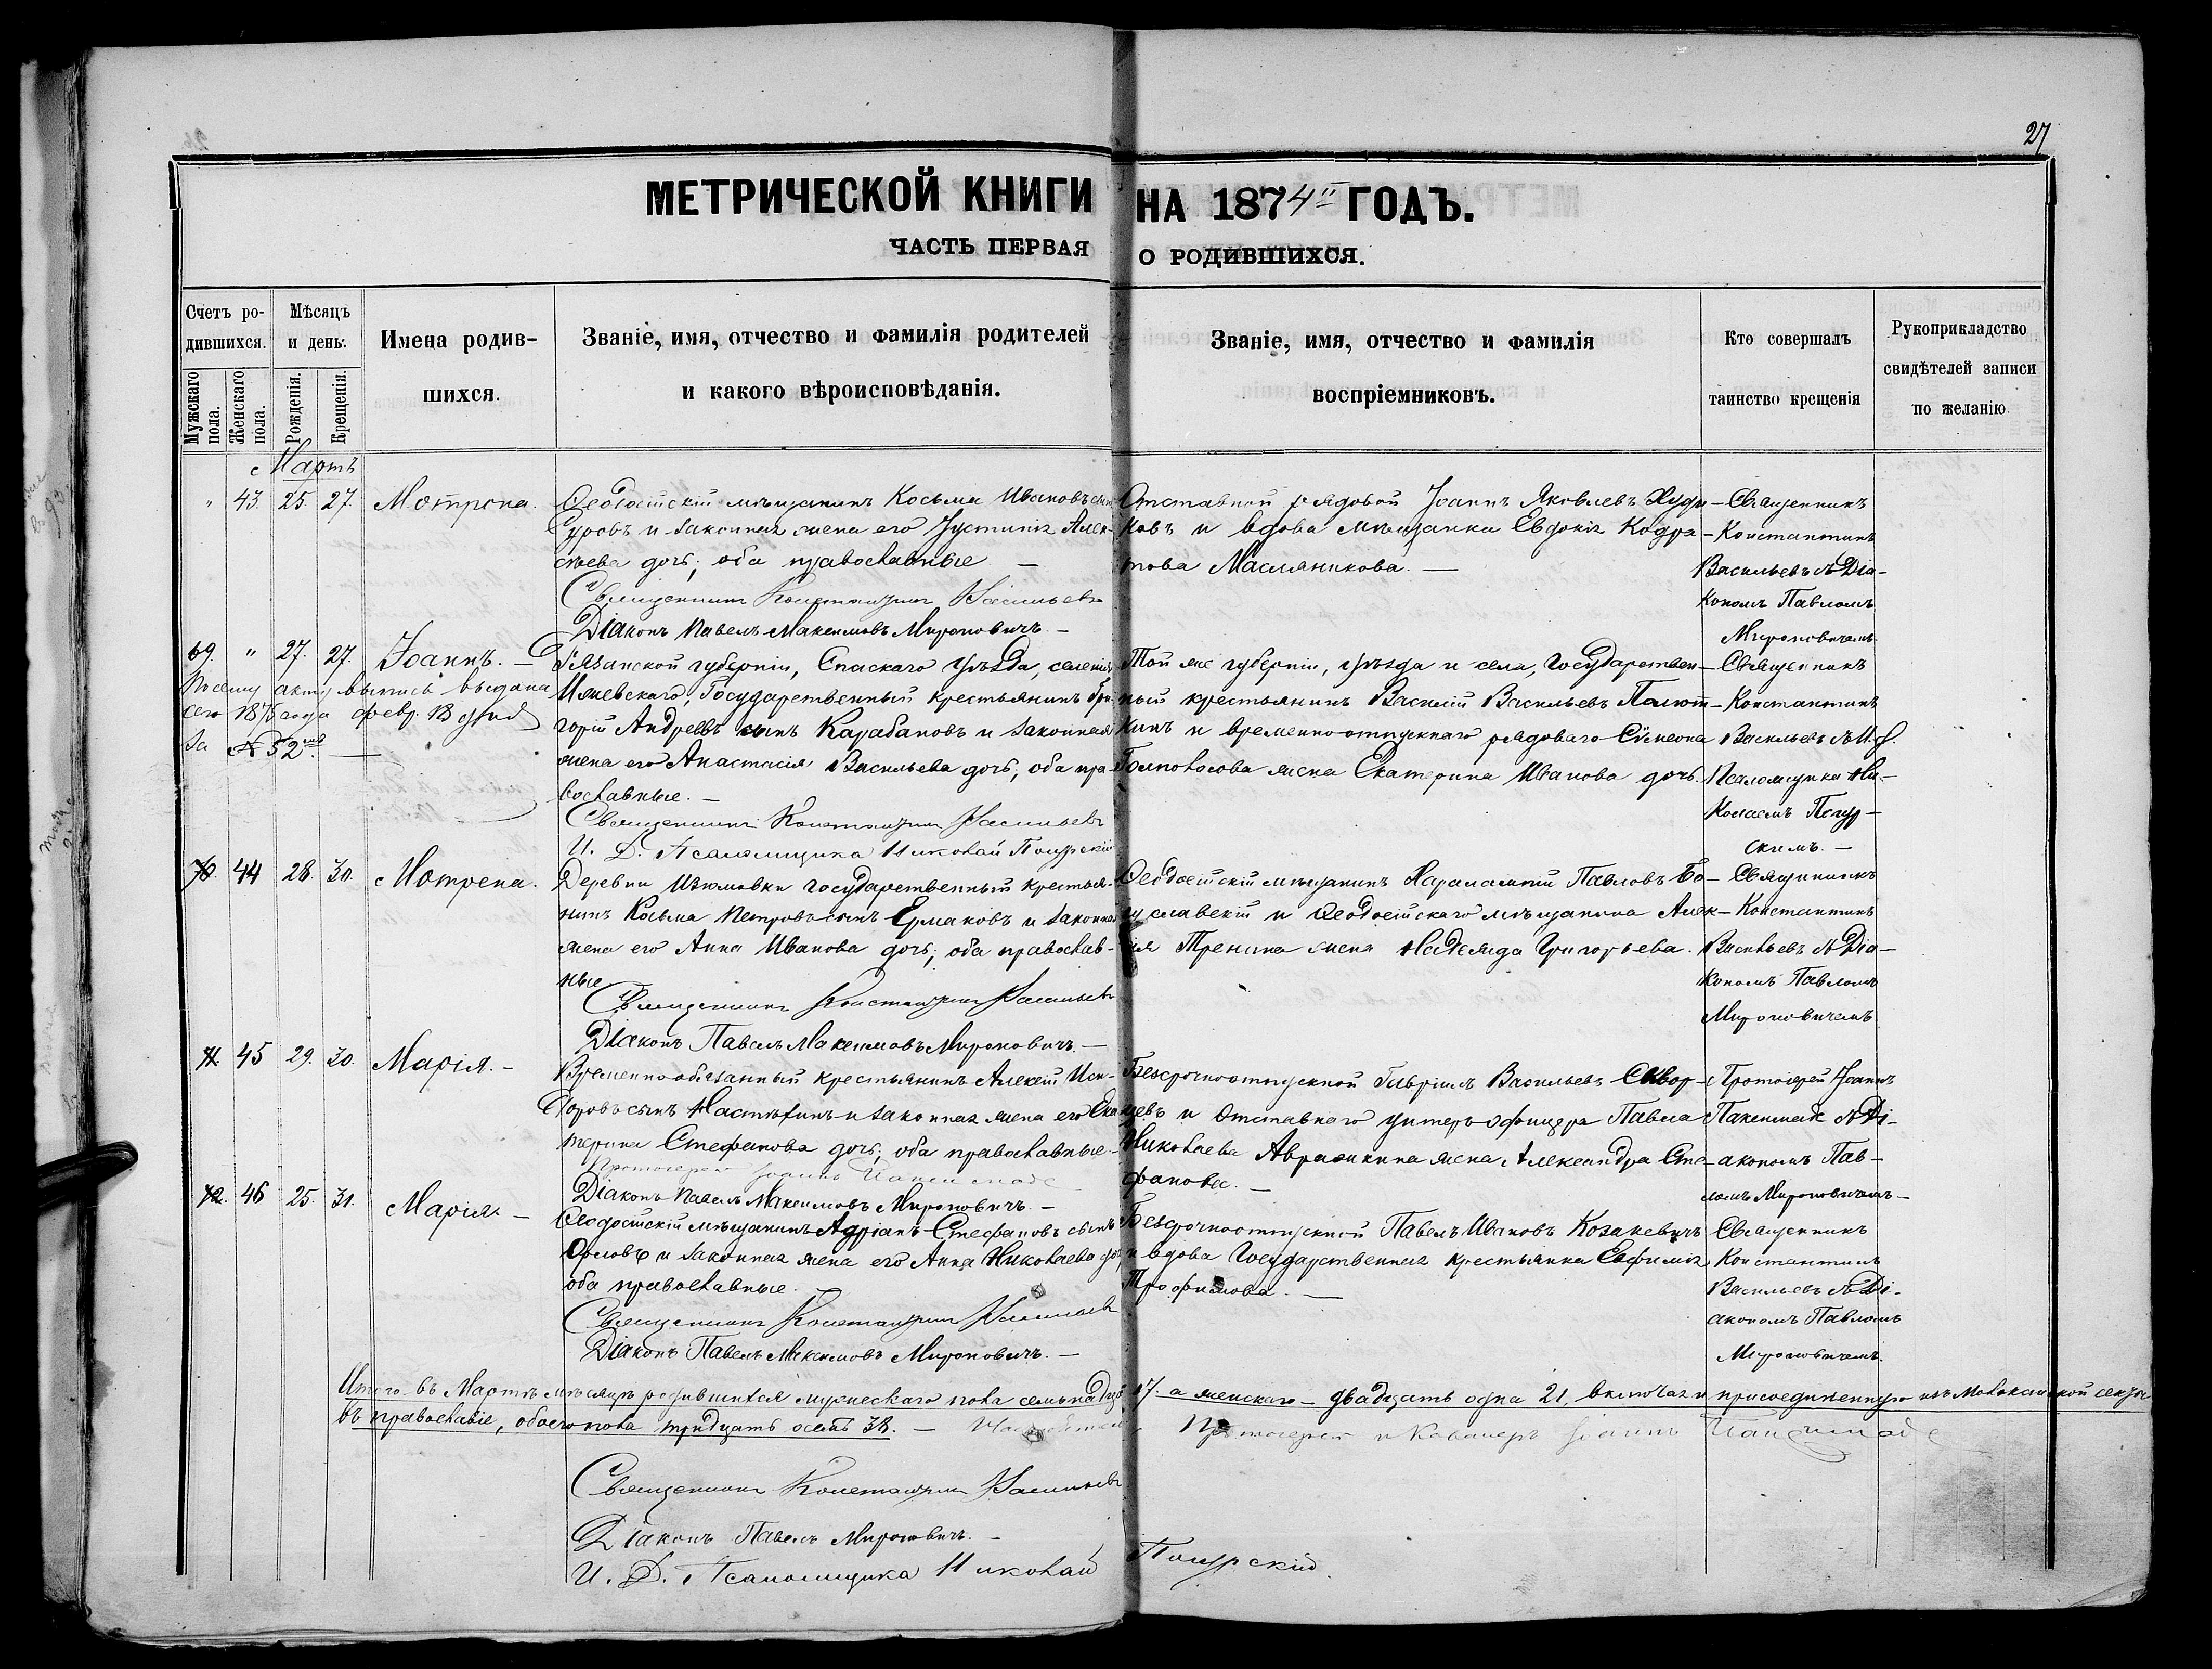 27
МЕТРИЧЕСКОЙ КНИГИ НА 1874й ГОДЪ.
ЧАСТЬ ПЕРВАЯ О РОДИВШИХСЯ.
Счетъ родившихся.
Мужскаго пола.
Женскаго пола.
Мѣсяцъ и день.
Рожденія.
Крещенія.
Имена родив-
шихся.
Званіе, имя, отчество и фамилія родителей
и какого вѣроисповѣданія.
Званіе, имя, отчество и фамилія
воспріемниковъ.
Кто совершалъ
таинство крещенія
Рукоприкладство
свидѣтелей записи
по желанію
Мартъ
" 43. 25. 27. Мотрона.
Ѳеодосійскій мѣщанинъ Косьма Ивановъ сынъ
Суровъ и законная жена его Іустинія Алек-
сѣева дочь, оба православные —
Священникъ Константинъ Васильевъ
Діаконъ Павелъ Максимовъ Мироновичъ. —
Отставной рядовой Іоаннъ Яковлевъ Худя-
ковъ и вдова мѣщанка Евдокія Кодра-
това Масляникова. —
Священникъ
Константинъ
Васильевъ съ Діа-
кономъ Павломъ
Мироновичемъ.
69. " 27. 27. Іоаннъ. —
По сему акту выпись выдана
сего 1875 года февр. 18 дня
за № 52
Рязанской губерніи, Спаскаго уѣзда, селенія
Ижевскаго, Государственный крестьянинъ Гри-
горій Андреевъ сынъ Карабановъ и законная
жена его Анастасія Васильева дочь, оба пра-
вославные. —
Священникъ Константинъ Васильевъ
И. Д. Псаломщика Николай
Той же губерніи, уѣзда и села, Государствен-
ный крестьянинъ Василій Васильевъ
кинъ и временноотпускнаго рядоваго Сѵмеона
жена Екатерина Иванова дочь.
Священникъ
Константинъ
Васильевъ съ И. д.
Псаломщика Ни-
колаемъ
скимъ. —
70. 44 28. 30. Мотрена.
Деревни Изюмовки государственный крестья-
нинъ Косьма Петровъ сынъ Ермаковъ и законная
жена его Анна Иванова дочь, оба православ-
ные
Священникъ Константинъ Васильевъ
Діаконъ Павелъ Максимовъ Мироновичъ. —
Ѳеодосійскій мѣщанинъ Харалампій Павловъ Бо-
гуславскій и Ѳеодосійскаго мѣщанина Алек-
сія Тренина жена Надежда Григорьева.
Священникъ
Константинъ
Васильевъ съ Діа-
кономъ Павломъ
Мироновичемъ
71. 45 29. 30. Марія. —
Временнообязанный крестьянинъ Алексій Иси-
доровъ сынъ и законная жена его Ека-
терина Стефанова дочь, оба православные
Протоіерей Іоаннъ
Діаконъ Павелъ Максимовъ Мироновичъ. —
Безсрочноотпускной Гавріилъ Васильевъ Сквор-
цевъ и отставнаго унтеръ-офицера Павла
Николаева жена Александра Сте-
фанова. —
Протоіерей Іоаннъ
съ Ді-
акономъ Пав-
ломъ Мироновичемъ —
72. 46 25. 31. Марія. —
Ѳеодосійскій мѣщанинъ Адріанъ Стефановъ сынъ
Орловъ и законная жена его Анна Николаева дочь
оба православные. —
Священникъ Константинъ Васильевъ
Діаконъ Павелъ Максимовъ Мироновичъ. —
Безсрочноотпускной Павелъ Ивановъ Козакевичъ
и вдова Государственная крестьянка Евфимія
Трофимова. —
Священникъ
Константинъ
Васильевъ съ Ді-
акономъ Павломъ
Мироновичемъ.
Итого въ Мартѣ мѣсяцѣ родившихся мужескаго пола семьнадцать 17. а женскаго — двадцать одна 21, включая и присоединенную изъ Молоканской секты
въ православіе, обоего пола тридцать осемь 38. — Протоіерей и Кавалеръ Іоаннъ
Священникъ Константинъ Васильевъ
Діаконъ Павелъ Мироновичъ. —
И. Д. Псаломщика Николай